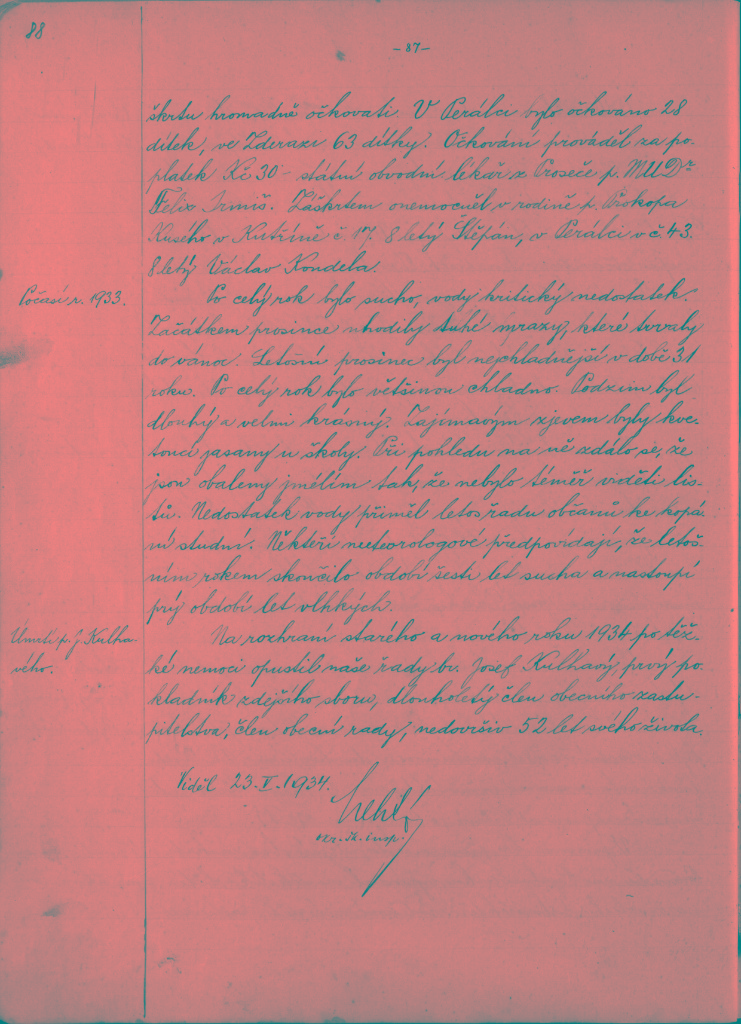 88
- 87 -
škrtu hromadně očkovati. V Perálci bylo očkováno 28
dítek, ve Zderaze 63 dítky. Očkování prováděl za po-
platek Kč 30- státní obvodní lékař z Proseče p. MUDr
Felix Irmiš. Záškrtem onemocněl v rodině p. Prokopa
Kusého v Kutříně č. 17. 8 letý Štěpán, v Perálci v č. 43.
8 letý Václav Kondela.
Počasí r. 1933.
Po celý rok bylo sucho, vody kritický nedostatek.
Začátkem prosince uhodily tuhé mrazy, které trvaly
do vánoc. Letošní prosinec byl nejchladnější v době 31
roku. Po celý rok bylo většinou chladno. Podzim byl
dlouhý a velmi krásný. Zajímavým zjevem byly kve-
toucí jasany u školy. Při pohledu na ně zdálo se, že
jsou obaleny jmélím tak, že nebylo téměř viděti lis-
tů. Nedostatek vody přiměl letos řadu občanů ke kopá-
ní studní. Někteří meteorologové předpovídají, že letoš-
ním rokem skončilo období šesti let sucha a nastoupí
prý období let vlhkých.
Úmrtí p. J. Kulha-
vého.
Na rozhraní starého a nového roku 1934 po těž-
ké nemoci opustil naše řady br. Josef Kulhavý, prvý po-
kladník zdejšího sboru, dlouholetý člen obecního zastu-
pitelstva, člen obecní rady, nedovršiv 52 let svého života.
Viděl 23. V. 1934.
okr. šk. insp.